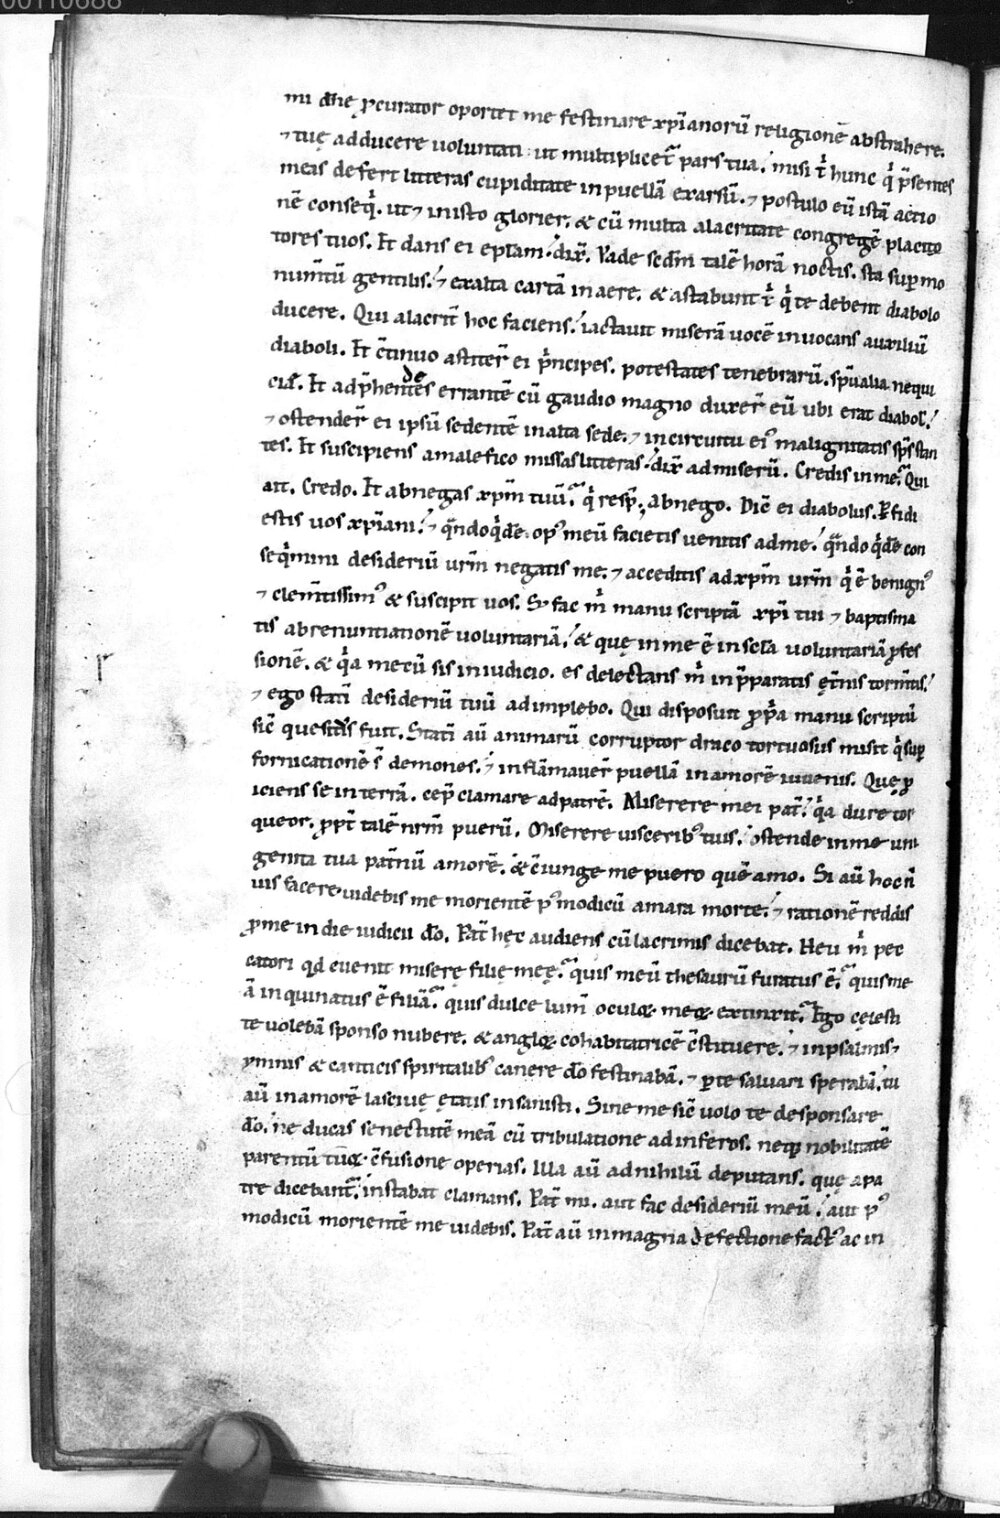 00110688
mi dñe ꝓcurator oportet me festinare xp̃ianorũ religionẽ abstrahere.
⁊ tuę adducere uoluntati. ut multiplicet᷑ pars tua. misi t̾ hunc q̾ p̃sentes
meas defert litteras cupiditate in puellã exarsũ. ⁊ postulo eũ istã actio
nẽ conseq̾. ut ⁊ in isto glorier. & cũ multa alacritate congregẽ placito
tores tuos. Et dans ei ep̃lam. dix̃. Vade sedm̃ talẽ horã noctis. sta suꝑ mo
num̃tũ gentilis. ⁊ exalta cartã in aere. & astabunt t̾ q̾ te debent diabolo
ducere. Qui alacrit̃ hoc faciens. iactauit miserã uocẽ inuocans auxiliũ
diaboli. Et c̃tinuo astiter̃ ei p̾ncipes. potestates tenebrarũ. sp̃ualia nequi
cię. Et adp̃hendentes errantẽ cũ gaudio magno duxer̃ eũ ubi erat diabol̃.
⁊ ostender̃ ei ipsũ sedentẽ in alta sede. ⁊ in circuitu ei᷒ malignitatis sp̃s stan
tes. Et suscipiens a malefico missas litteras. dix̃ ad miserũ. Credis in me? Qui
ait. Credo. Et abnegas xp̃m tuũ? q̾ resp̃. abnego. Dic̃ ei diabolus. Ꝑfidi
estis uos xp̃iani. ⁊ q̃ndo q̾dẽ op᷒ meũ facietis uenitis ad me. q̃ndo q̾dẽ con
seq̾mini desideriũ ur̃m negatis me. ⁊ acceditis ad xp̃m ur̃m q̾ ẽ benign᷒
⁊ clem̃tissim᷒ & suscipit uos. S; fac m̾ manu scriptã xp̃i tui ⁊ baptisma
tis abrenuntiationẽ uoluntariã. & quę in me ẽ in scl̃a uoluntariã ꝓfes
sionẽ. & q̾a mecũ sis in iudicio. es delectans m̾ in p̃paratis ęt̃nis torm̃tis.
⁊ ego statĩ desideriũ tuũ adimplebo. Qui disposuit ꝓp̾a manu scriptũ
sic̃ quesitus fuit. Statĩ aũ animarũ corruptor draco tortuosus misit q̾ suꝑ
fornicationẽ s̃ demones. ⁊ inflãmauer̃ puellã in amorẽ iuuenis. Quę ꝓ
iciens se in terrã. cep̃ clamare ad patrẽ. Miserere mei pat̃. q̾a dure tor
queor. ꝓpt̃ talẽ nr̃m puerũ. Miserere uiscerib᷒ tuis. ostende in me uni
genita tua pat̃nũ amorẽ. & c̃iunge me puero quẽ amo. Si aũ hoc ñ
uis facere. uidebis me morientẽ p᷒ modicũ amara morte. ⁊ rationẽ reddis
ꝓ me in die iudicii dõ. Pat̃ hęc audiens cũ lacrimis dicebat. Heu m̾ pec
catori qd euenit miserę filię meę? quis meũ thesaurũ furatus ẽ? quis me
ã inquinatus ẽ filiã? quis dulce lum̃ oculoꝝ meoꝝ extinxit? Ego cęlesti
te uolebã sponso nubere. & angloꝝ cohabitatricẽ c̃stituere. ⁊ in psalmis ⁊
ymnis & canticis spiritalib᷒ canere dõ festinabã. ⁊ ꝑ te saluari sperabã. tu
aũ in amorẽ lasciuę ętatis insanisti. Sine me sic̃ uolo te desponsare
dõ. ne ducas senectutẽ meã cũ tribulatione ad inferos. neq; nobilitatẽ
parentũ tuoꝝ c̃fusione operias. Illa aũ ad nihilũ deputans. quę a pa
tre dicebant᷑. instabat clamans. Pat̃ mi. aut fac desideriũ meũ. aut p᷒
modicũ morientẽ me uidebis. Pat̃ aũ in magna defectione fact᷒ ac in